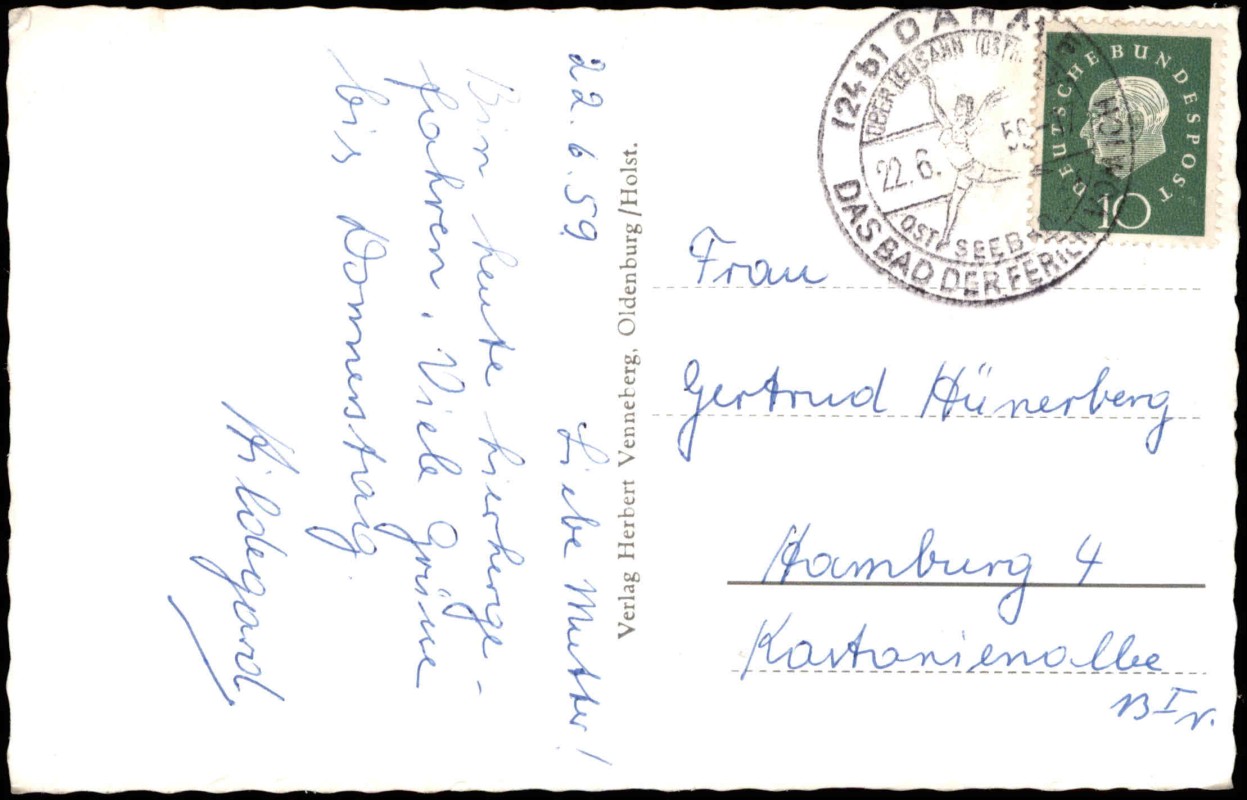 22.6.59 Liebe Mutter!
Bin heute hierherge-
fahren. Viele Grüsse
bis Donnerstag.
Hildegard
Verlag Herbert Venneberg, Oldenburg/Holst.
(24b) DAHME
OSTSEEBAD
22.6.59
DAS BAD DER FERIEN FÜR MICH
DEUTSCHE BUNDESPOST
10
Frau
Gertrud Hünerberg
Hamburg 4
Kastanienallee